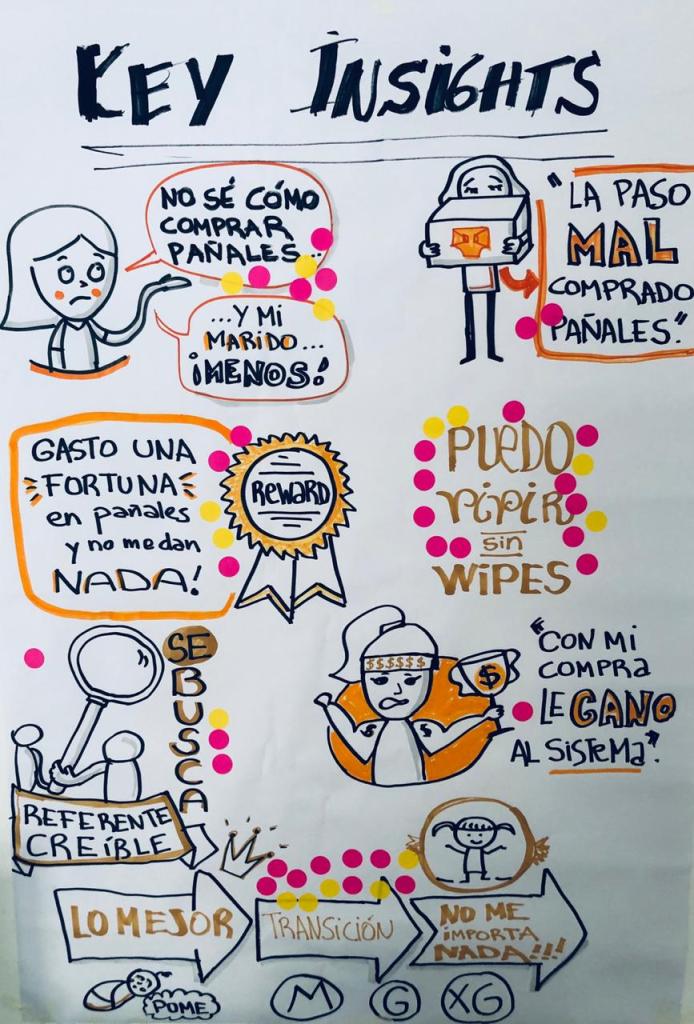 KEY INSIGHTS
NO SÉ CÓMO
COMPRAR
PAÑALES...
...Y MI
MARIDO...
¡MENOS!
"LA PASO
MAL
COMPRADO
PAÑALES."
GASTO UNA
FORTUNA
en pañales
y no me dan
NADA!
REWARD
PUEDO
vivir
sin
WIPES
SE
BUSCA
REFERENTE
CREÍBLE
$$$$$$
$
$
$
"CON MI
COMPRA
LE GANO
AL SISTEMA".
LO MEJOR
TRANSICIÓN
NO ME
IMPORTA
NADA!!!
POME
M
G
XG